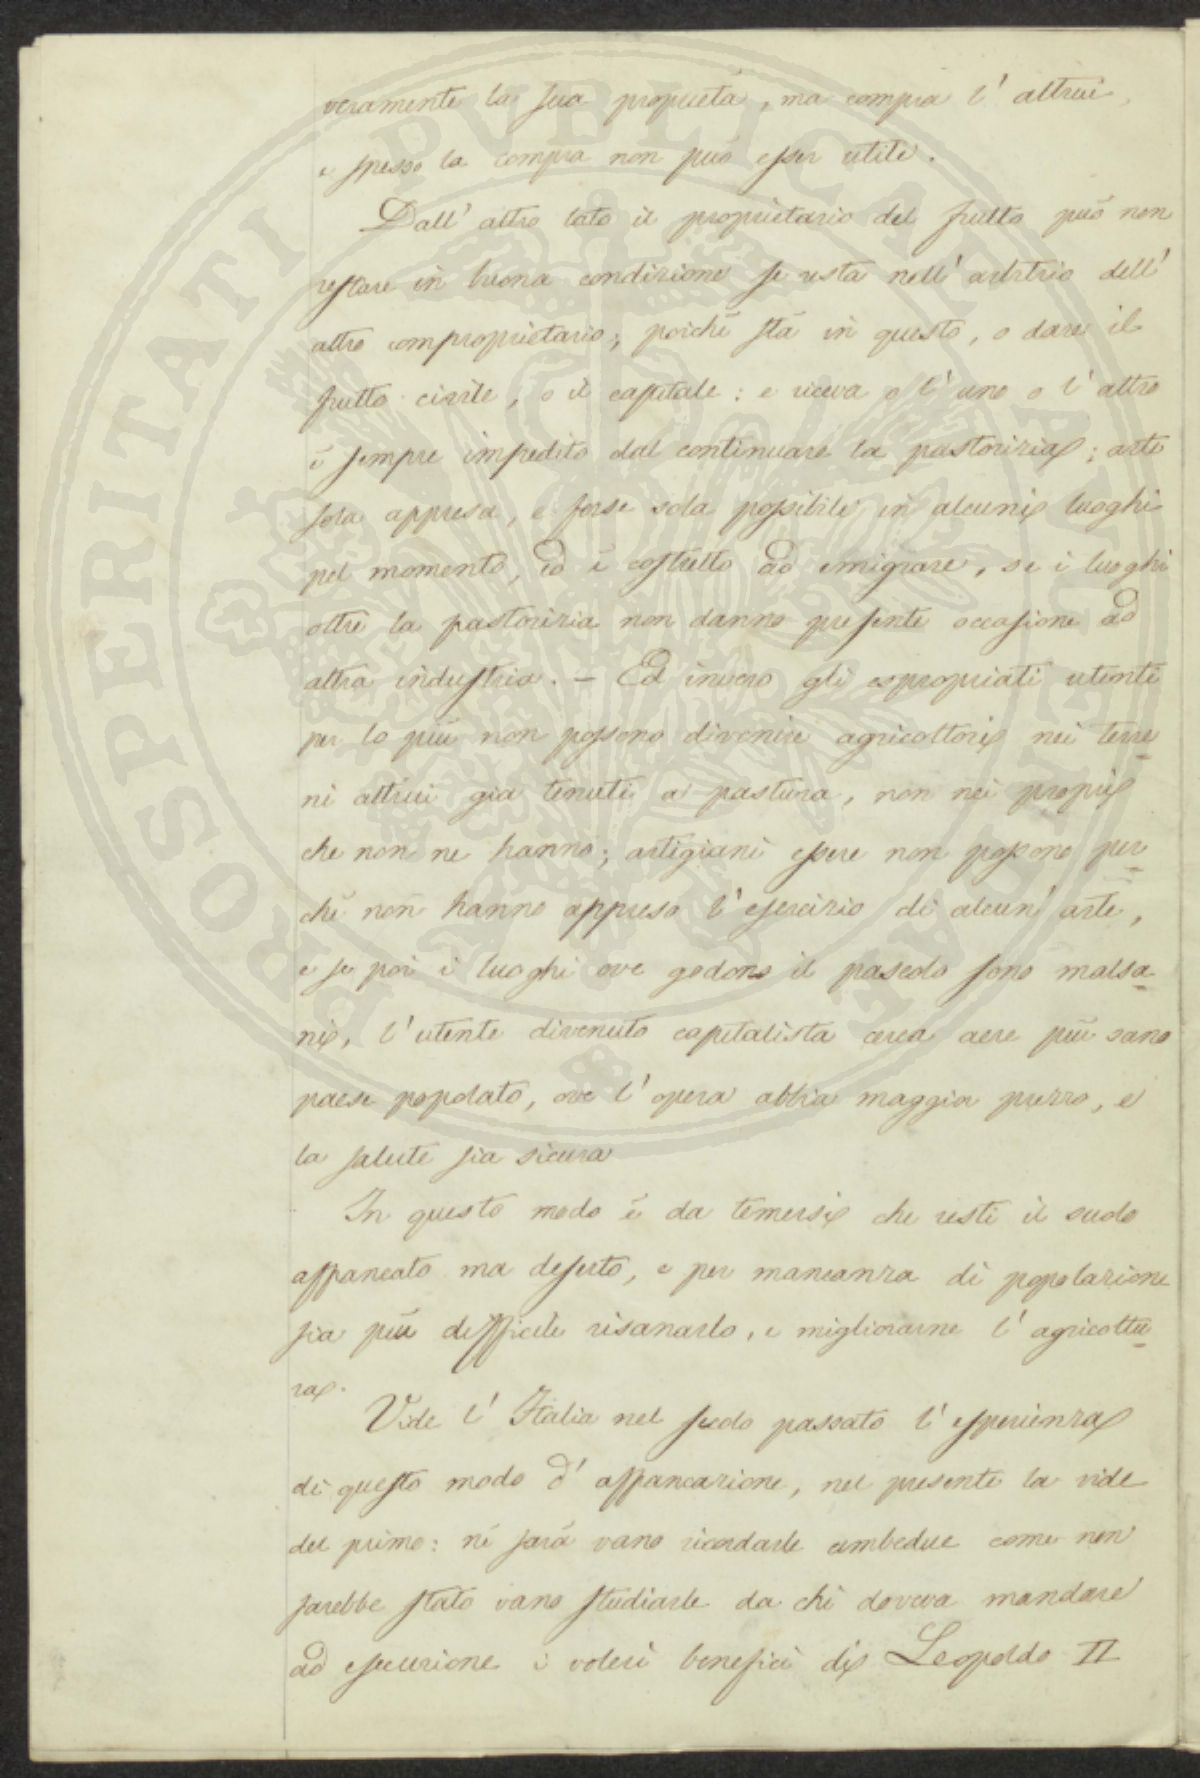 veramente la sua proprietà, ma compra l'altrui,
e spesso la compra non può esser utile.
Dall'altro lato il proprietario del frutto può non
restare in buona condizione se resta nell'arbitrio dell'
altro comproprietario; poichè stà in questo, o dare il
frutto civile, o il capitale: e riceva o l'uno o l'altro
è sempre impedito dal continuare la pastorizia; arte
sola appresa, e forse sola possibile in alcuni luoghi
pel momento, ed è costretto ad emigrare, se i luoghi
oltre la pastorizia non danno presente occasione ad
altra industria. — Ed invero gli espropriati utenti
per lo più non possono divenire agricoltori nei terre-
ni altrui già tenuti a pastura, non nei proprii
che non ne hanno; artigiani essere non possono per-
chè non hanno appreso l'esercizio di alcun'arte,
e se poi i luoghi ove godono il pascolo sono malsa-
ni, l'utente divenuto capitalista cerca aere più sano
paese popolato, ove l'opera abbia maggior prezzo, e
la salute sia sicura
In questo modo è da temersi che resti il suolo
affrancato ma deserto, e per mancanza di popolazione
sia più difficile risanarlo, e migliorarne l'agricoltu-
ra.
Vide l'Italia nel secolo passato l'esperienza
di questo modo d'affrancazione, nel presente la vide
del primo: nè sarà vano ricordarle ambedue come non
sarebbe stato vano studiarle da chi doveva mandare
ad esecuzione i voleri benefici di Leopoldo II
PROSPERITATI PUBLICAE AUGENDAE